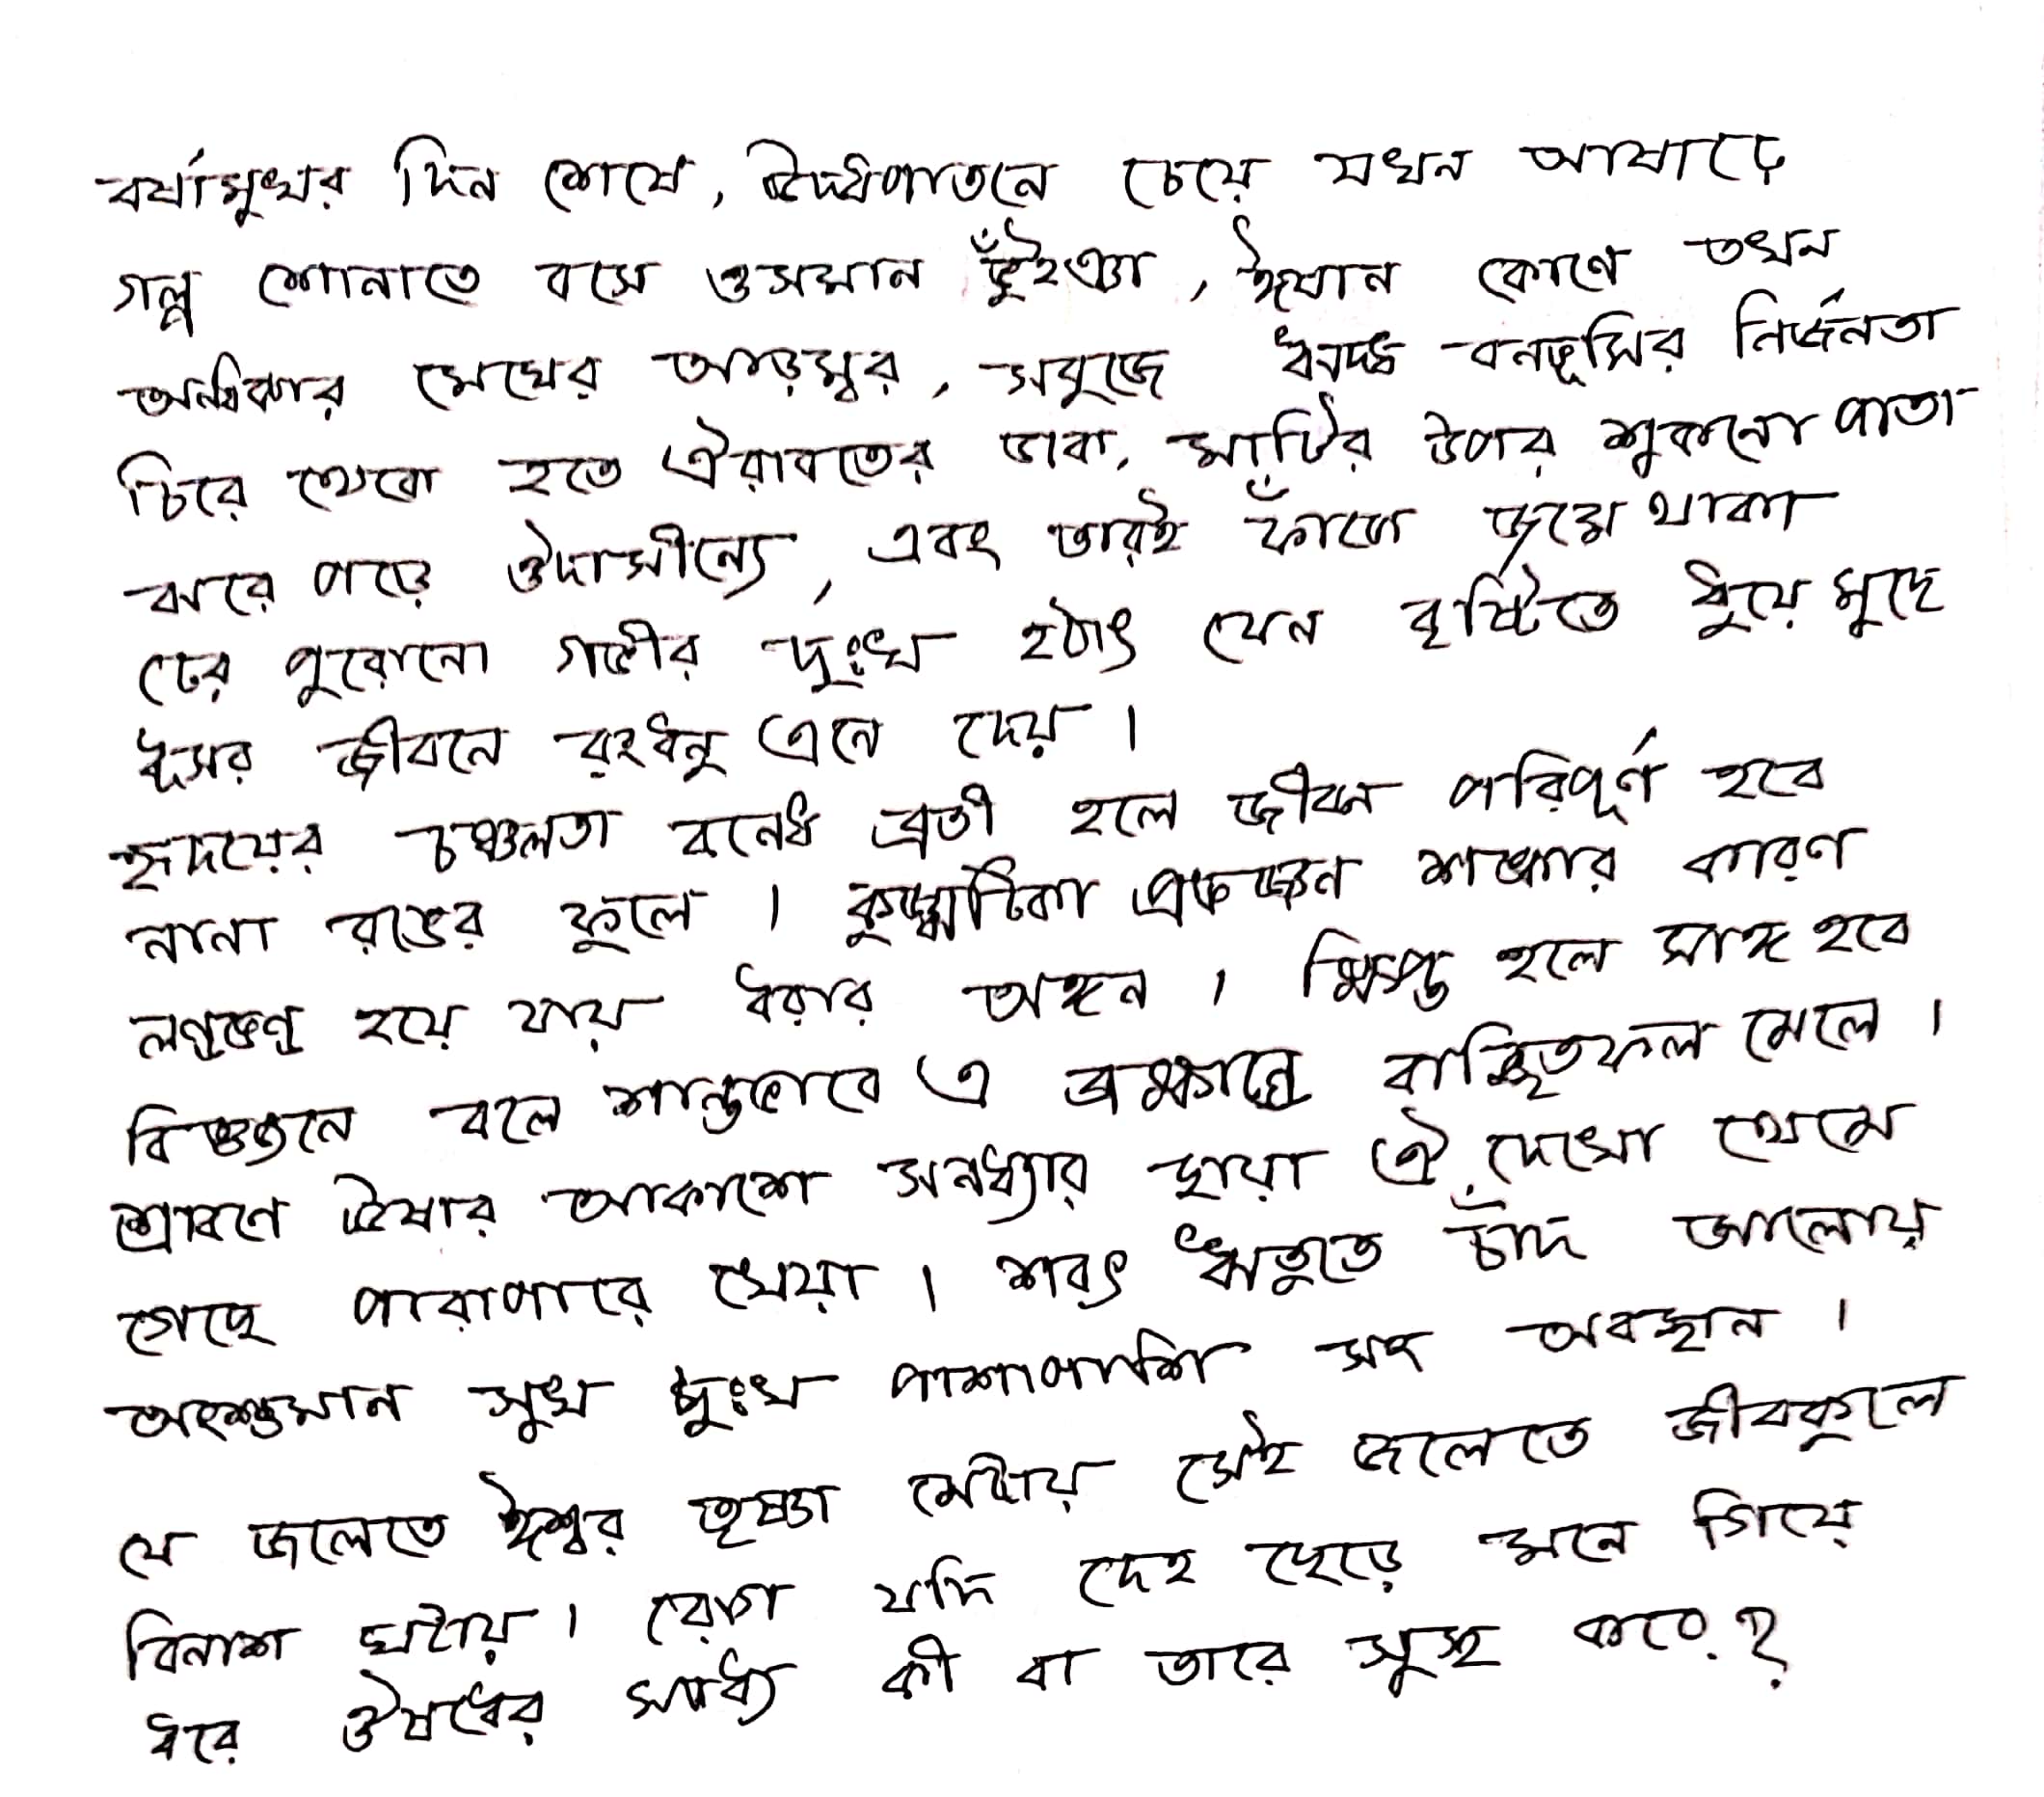 বর্ষামুখর দিন শেষে, ঊর্ধ্বপানে চেয়ে যখন আষাঢ়ে
গল্প শোনাতে বসে ওসমান ভুঁইঞা, ঈষান কোণে তখন
অন্ধকার মেঘের আড়ম্বর, সবুজে ঋদ্ধ বনভূমির নির্জনতা
চিরে থেকে হতে ঐরাবতের ডাক, মাটির উপর শুকনো পাতা
ঝরে পড়ে ঔদাসীন্যে, এবং তারই ফাঁকে জমে থাকা
ঢের পুরোনো গভীর দুঃখ হঠাৎ যেন বৃষ্টিতে ধুয়ে মুছে
ধূসর জীবনে রংধনু এনে দেয়।
হৃদয়ের চঞ্চলতা বন্ধে ব্রতী হলে জীবন পরিপূর্ণ হবে
নানা রঙের ফুলে। কুজ্ঝটিকা প্রভঞ্জন শঙ্কার কারণ
লণ্ডভণ্ড হয়ে যায় ধরার অঙ্গন। ক্ষিপ্ত হলে সাঙ্গ হবে
বিজ্ঞজনে বলে শান্তভাবে এ ব্রহ্মাণ্ডে বাঞ্ছিতফল মেলে।
শ্রাবণে ঊষার আকাশে সন্ধ্যার ছায়া ঐ দেখো থেমে
গেছে পারাপারে খেয়া। শরৎ ঋতুতে চাঁদ আলোয়
অংশুমান সুখ দুঃখ পাশাপাশি সহ অবস্থান।
যে জলেতে ঈশ্বর তৃষ্ণা মেটায় সেই জলেতে জীবকূলে
বিনাশ ঘটায়। রোগ যদি দেহ ছেড়ে মনে গিয়ে
ধরে ঔষধের সাধ্য কী বা তারে সুস্থ করে?